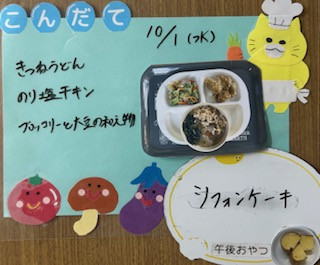 こんだて
10/1 (水)
きつねうどん
のり塩チキン
ブロッコリーと大豆の和え物
シフォンケーキ
午後おやつ